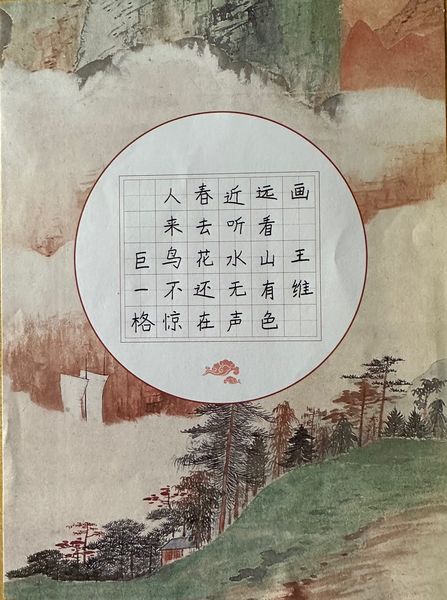 画 王维
远看山有色
近听水无声
春去花还在
人来鸟不惊
巨一格